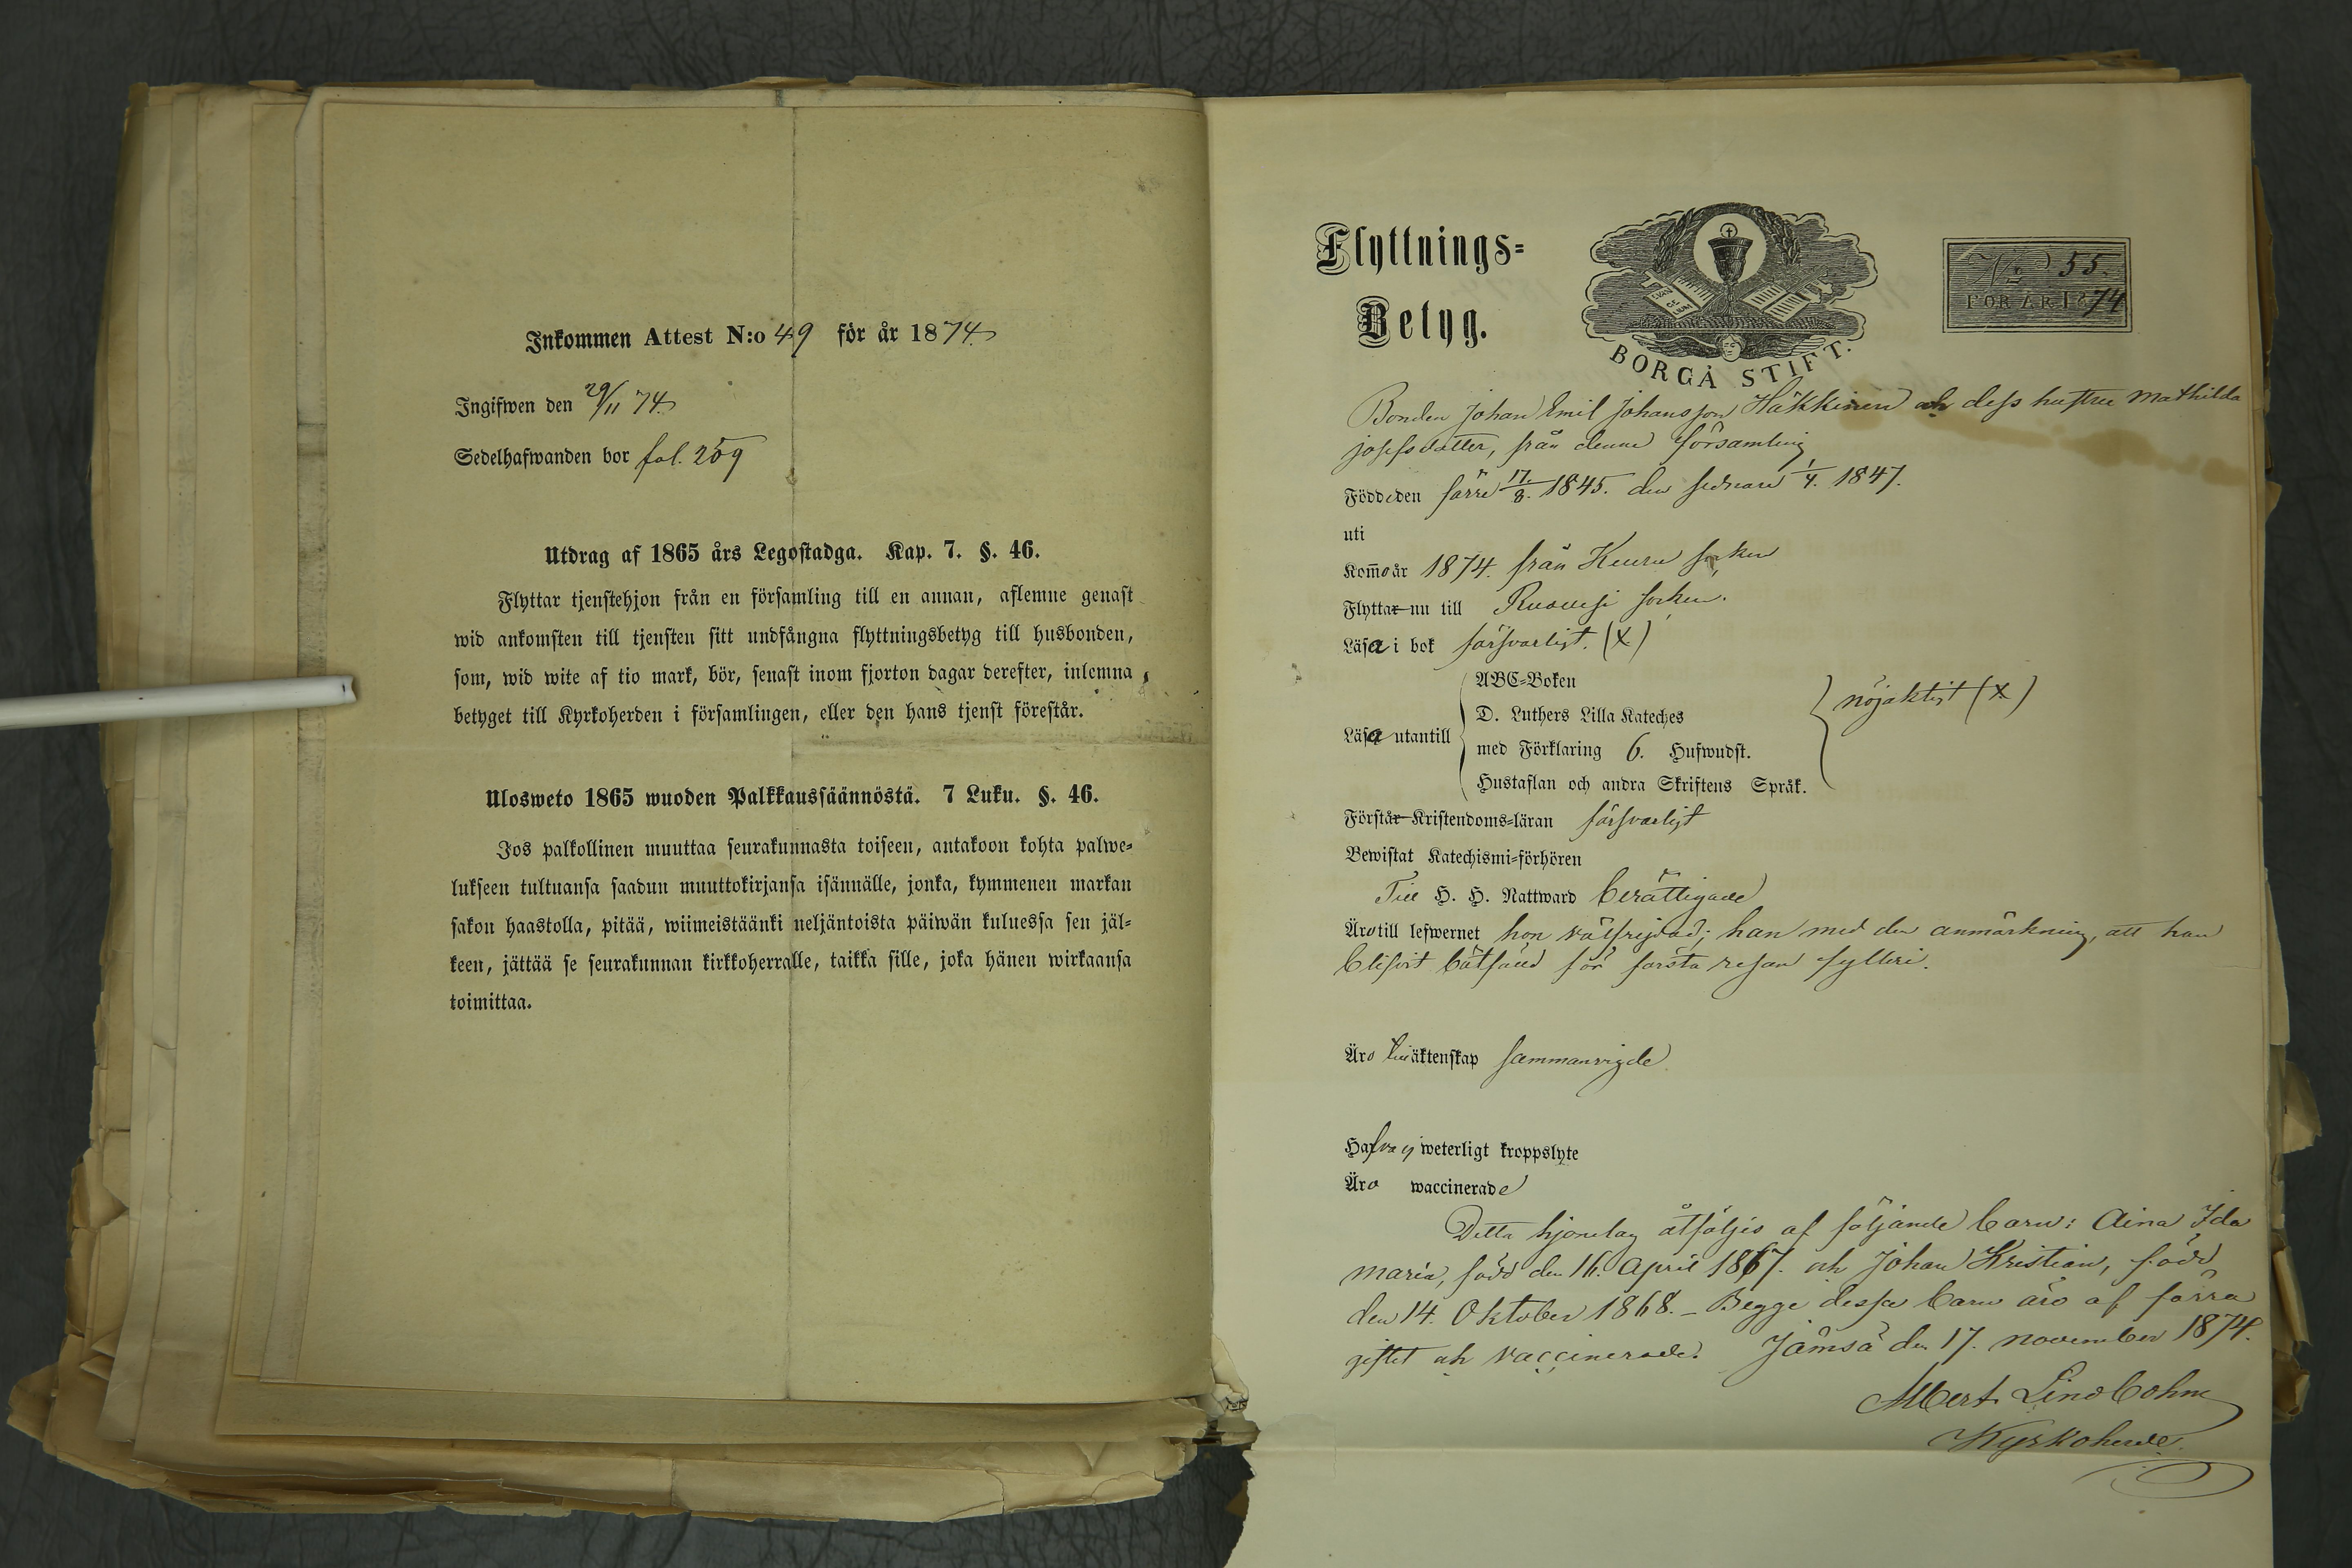 Inkommen Attest N:o 49 för år 1874
Ingifwen den 29/11 74
Sedelhafwanden bor fol. 259
Utdrag af 1865 års Legostadga. Kap. 7. §. 46.
Flyttar tjenstehjon från en församling till en annan, aflemne genast
wid ankomsten till tjensten sitt undfångna flyttningsbetyg till husbonden,
som, wid wite af tio mark, bör, senast inom fjorton dagar derefter, inlemna
betyget till Kyrkoherden i församlingen, eller den hans tjenst förestår.
Ulosweto 1865 wuoden Palkkaussäännöstä. 7 Luku. §. 46.
Jos palkollinen muuttaa seurakunnasta toiseen, antakoon kohta palwe=
lukseen tultuansa saadun muuttokirjansa isännälle, jonka, kymmenen markan
sakon haastolla, pitää, wiimeistäänki neljäntoista päiwän kuluessa sen jäl=
keen, jättää se seurakunnan kirkkoherralle, taikka sille, joka hänen wirkaansa
toimittaa.
Flyttnings=
Betyg.
EVAN GE LIUM
BORGÅ STIFT.
No 55.
FÖR ÅR 1874
Bonden Johan Emil Johansson Häkkinen och dess hustru Mathilda
Josefsdotter, från denna församling
Födde den förre 17/8. 1845. den sednare 1/4. 1847.
uti
Kom̄o år 1874. från Keuru socken
Flyttar nu till Ruovesi socken.
Läsa i bok försvarligt. (X)
Läsa utantill
ABC=Boken
D. Luthers Lilla Kateches
med Förklaring 6. Hufwudst.
Hustaflan och andra Skriftens Språk.
nöjaktigt (X)
Förstår Kristendoms=läran försvarligt
Bewistat Katechismi=förhören
Till H. H. Nattward berättigade
Äro till lefwernet hon välfrejdad; han med den anmärkning, att han
blifvit bötfäld för första resan fylleri.
Äro till äktenskap sammanvigde
Hafva ej weterligt kroppslyte
Äro waccinerade
Detta hjonelag åtföljes af följande barn: Aina Ida
Maria, född den 16. April 1867. och Johan Kristian, född
den 14. Oktober 1868. – Begge dessa barn äro af förra
giftet och vaccinerade. Jämsä den 17. November 1874.
Albert Lindbohm
Kyrkoherde.